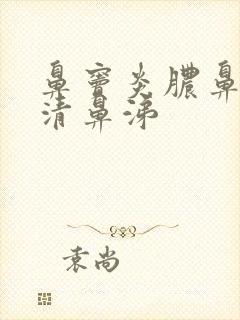 鼻窦炎脓鼻
清鼻涕
袁尚